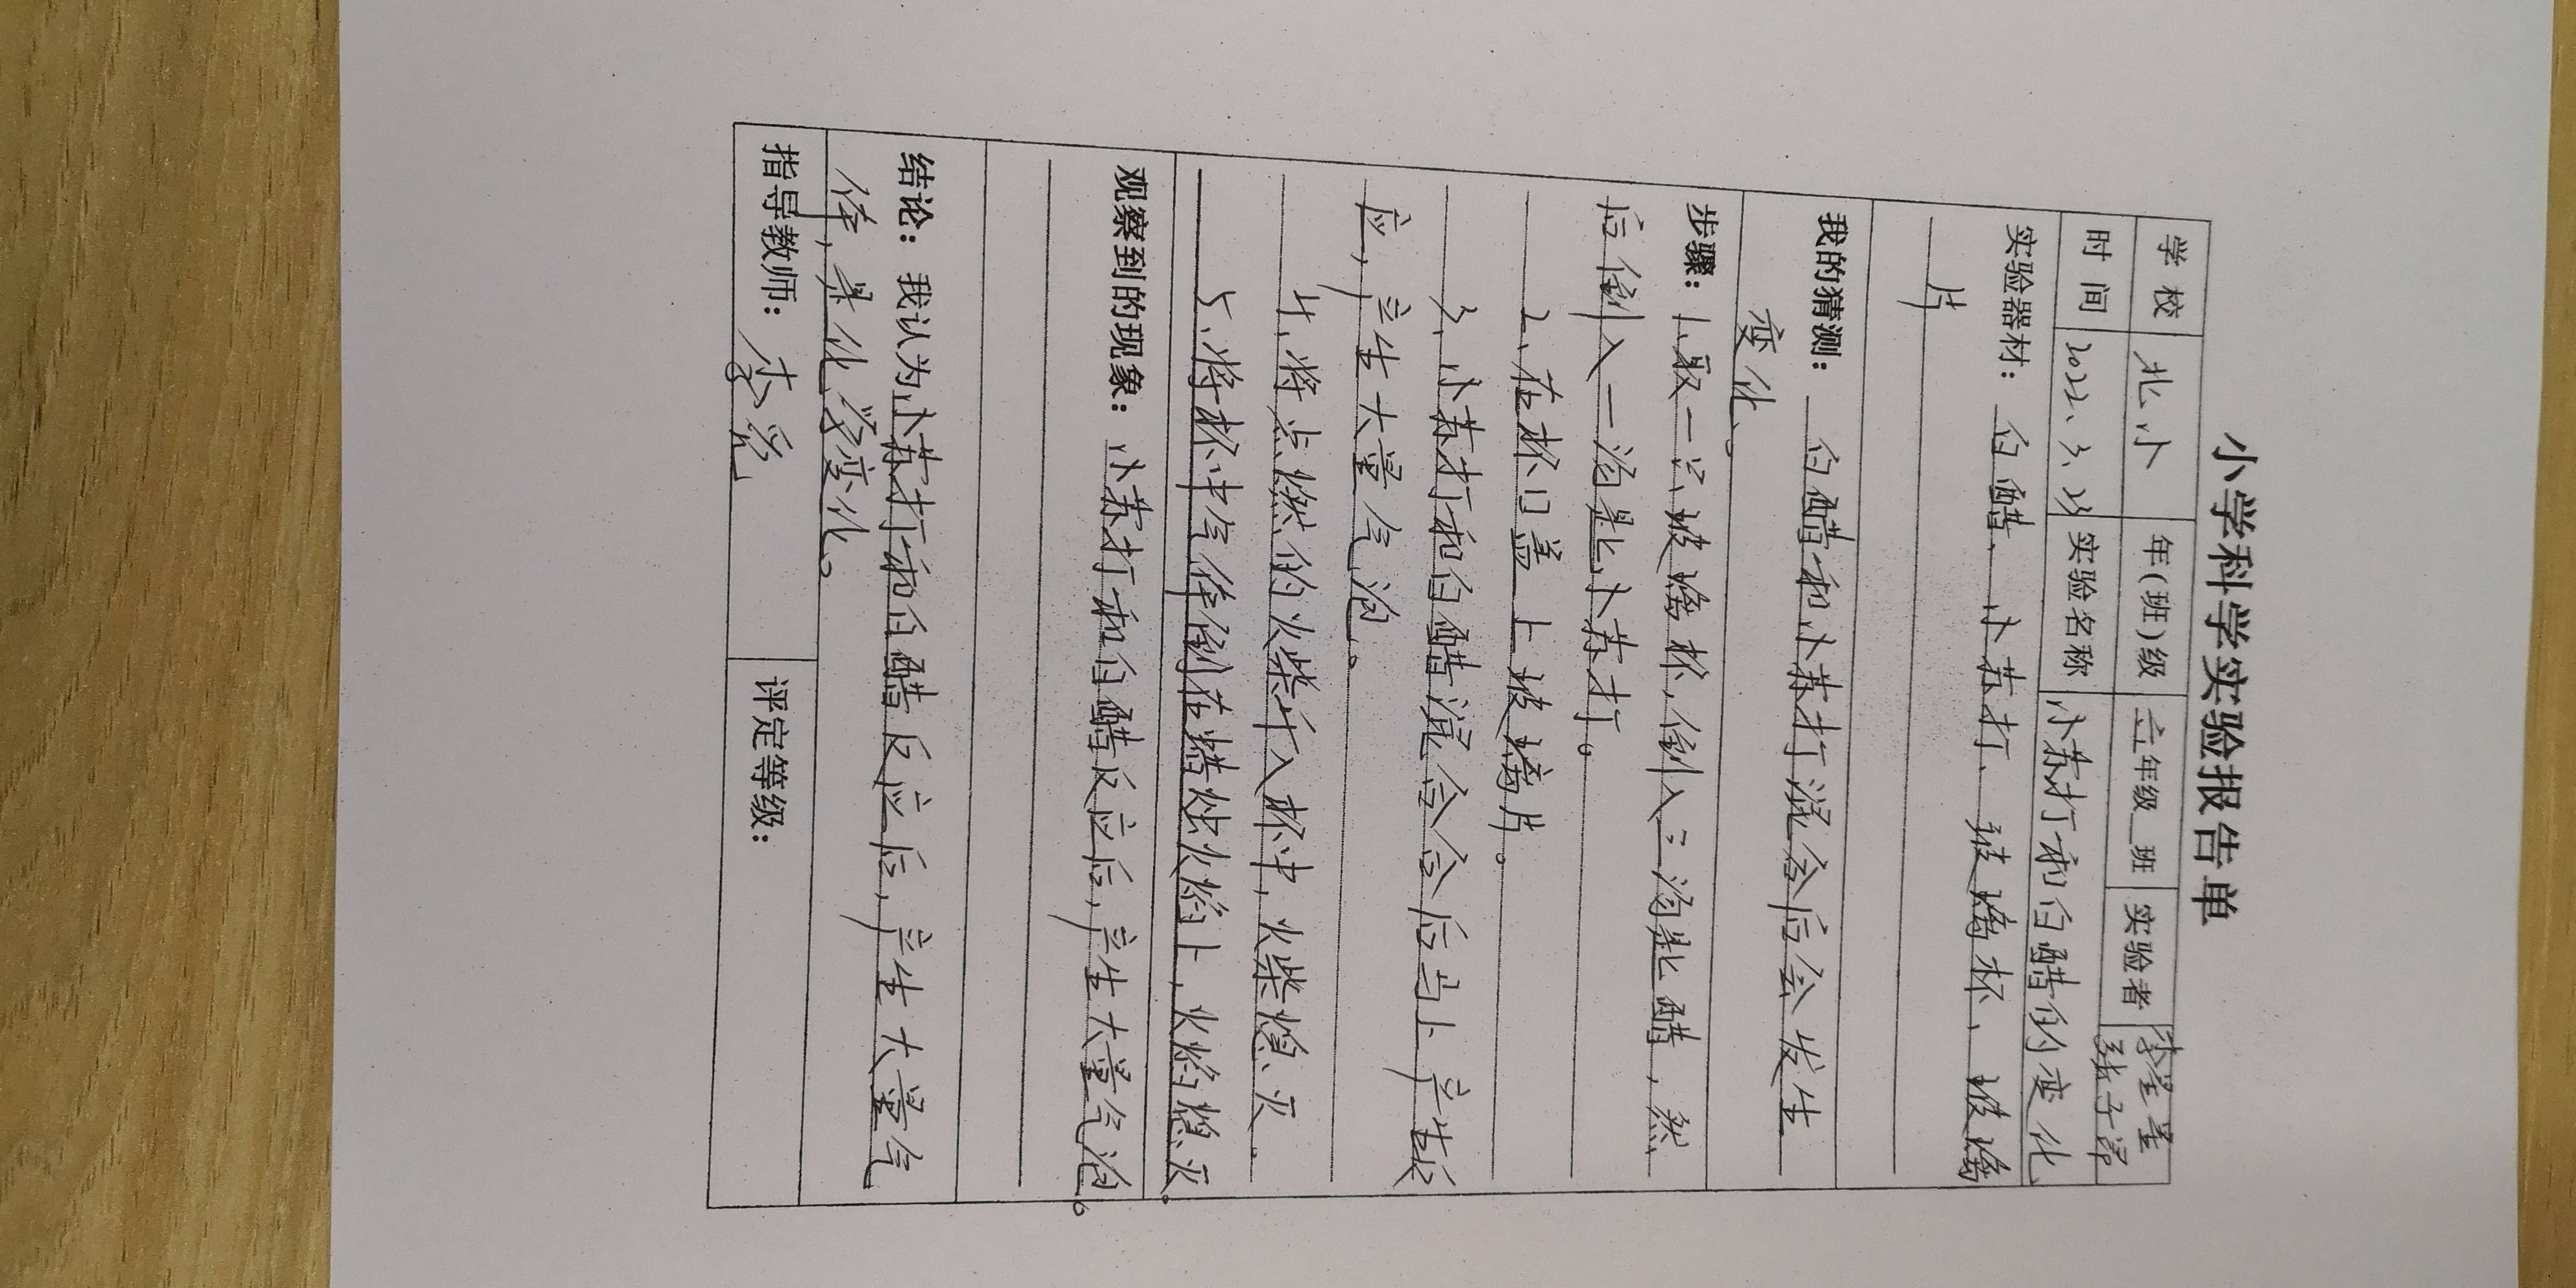 小学科学实验报告单
学 校 北小 年(班)级 六年级 班 实验者 李莹莹
张子昂
时 间 2022、3、23 实验名称 小苏打和白醋的变化
实验器材： 白醋、小苏打、玻璃杯、玻璃
片
我的猜测： 白醋和小苏打混合后会发生
变化。
步骤： 1、取一只玻璃杯，倒入三汤匙醋，然
后倒入一汤匙小苏打。
2、在杯口盖上玻璃片。
3、小苏打和白醋混合会后马上产生反
应，产生大量气泡。
4、将点燃的火柴斤入杯中，火柴熄灭。
5、将杯中气体倒在蜡烛火焰上，火焰熄灭。
观察到的现象： 小苏打和白醋反应后，产生大量气泡。
结论： 我认为小苏打和白醋反应后，产生大量气
体，是化学变化。
指导教师： 李彩 评定等级：